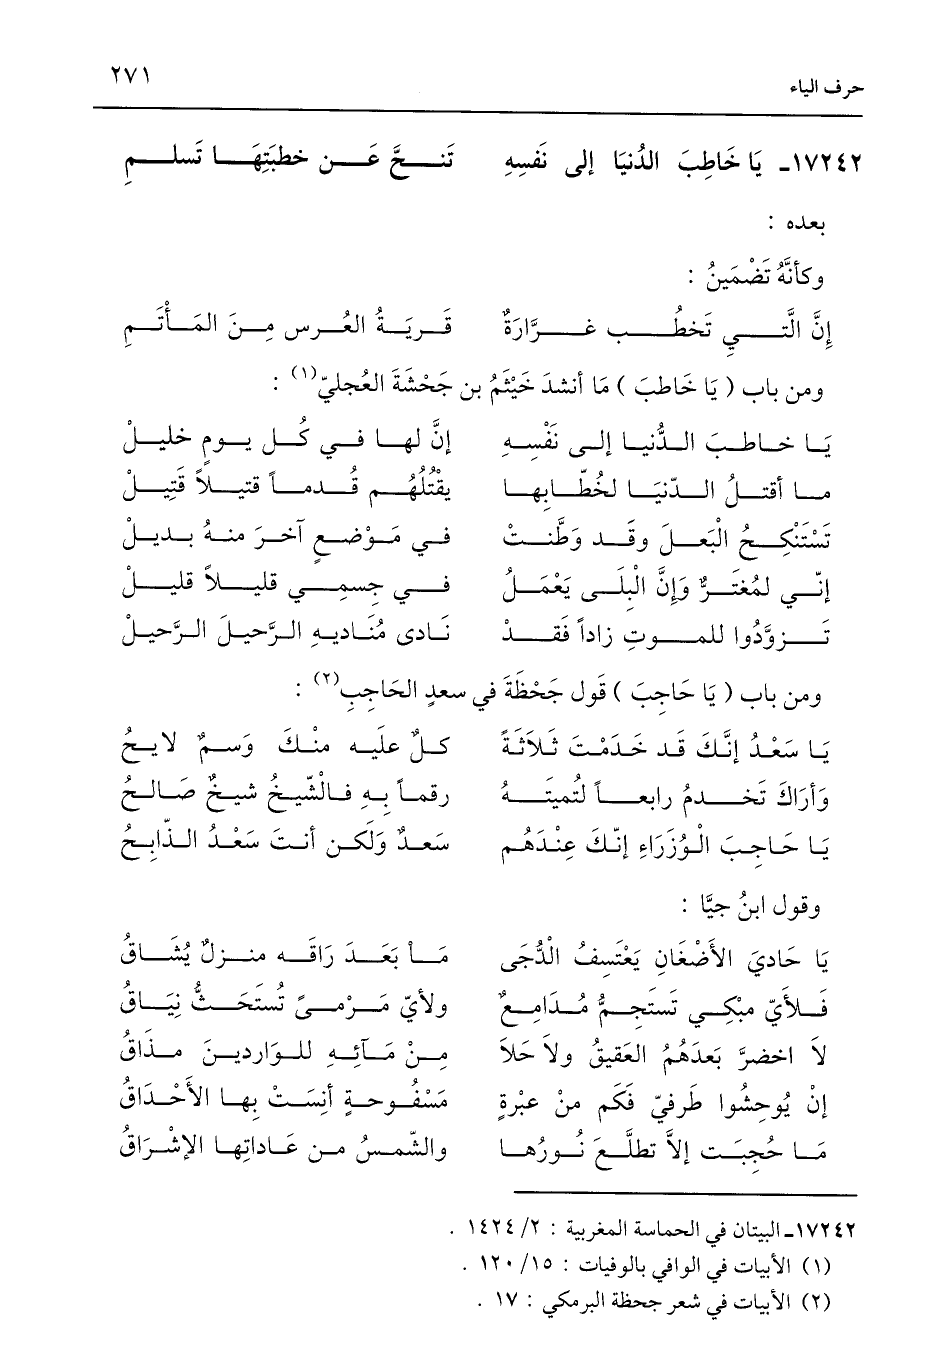 حرف الياء ٢٧١
١٧٢٤٢ـ يَا خَاطِبَ الدُنيَا إلى نَفسِهِ تَنحَّ عَن خطبَتِهَا تَسلمِ
بعده :
وكأنَّهُ تَضْمَينُ :
إنَّ الَّتي تَخطُب غرَّارَةٌ قَريَةُ العُرسِ مِنَ المَأْتَمِ
ومن باب ( يَا خَاطبَ ) مَا أنشدَ خَيْثَمُ بن جَحْشَةَ العُجليّ(١) :
يَا خاطبَ الدُّنيا إلى نفْسِهِ إنَّ لها في كُل يومٍ خليلْ
ما أقتلُ الدّنيَا لخُطّابها يقْتُلُهُم قُدماً قتيلاً قَتِيلْ
تَسْتَنْكحُ الْبَعلَ وقَد وَطَّنتْ في مَوْضعٍ آخرَ منهُ بديلْ
إنّي لمُغترٌّ وَإنَّ الْبلَى يَعْمَلُ في جسمي قليلاً قليلْ
تزوَّدُوا للموتِ زاداً فَقدْ نَادى مُنَاديهِ الرَّحيلَ الرَّحيلْ
ومن باب ( يَا حَاجِبَ ) قَول جَحْظَةَ في سعدِ الحَاجِبِ(٢) :
يَا سَعْدُ إنَّكَ قَد خَدَمْتَ ثَلاَثَةً كلٌ عليهِ منْكَ وَسمٌ لايحُ
وَأرَاكَ تَخدمُ رابعاً لتُميتَهُ رفقاً بهِ فالشّيخُ شيخٌ صَالحُ
يَا حَاجِبَ الْوُزَرَاءِ إنّكَ عِنْدَهُم سَعدٌ وَلَكن أنتَ سَعْدُ الذّابحُ
وقول ابنُ حيَّا :
يَا حَاديَ الأَضْعَانِ يَعْتَسفُ الْدُّجَى مَا بَعَدَ رَاقَه منزلٌ يُشَاقُ
فلأيّ مبْكىً تَستَجمُّ مُدَامِعٌ ولأيّ مَرْمىً تُستَحَثُّ نيَاقُ
لاَ اخضرَّ بَعدَهُمُ العَقيقُ ولاَ حَلاَ منْ مَآئهِ للوَاردينَ مذاقُ
إنْ يُوحشُوا طَرفيّ فَكَم منْ عبْرَةٍ مَسْفُوحةٍ أنِسَتْ بهَا الأَحْدَاقُ
مَا حُجبَت إلاَّ تطلَّعَ نُورُهَا والشّمسُ من عَادَاتِها الإشْرَاقُ
١٧٢٤٢ـ البيتان في الحماسة المغربية : ٢/ ١٤٢٤ .
(١) الأبيات في الوافي بالوفيات : ١٥/ ١٢٠ .
(٢) الأبيات في شعر جحظة البرمكي : ١٧ .